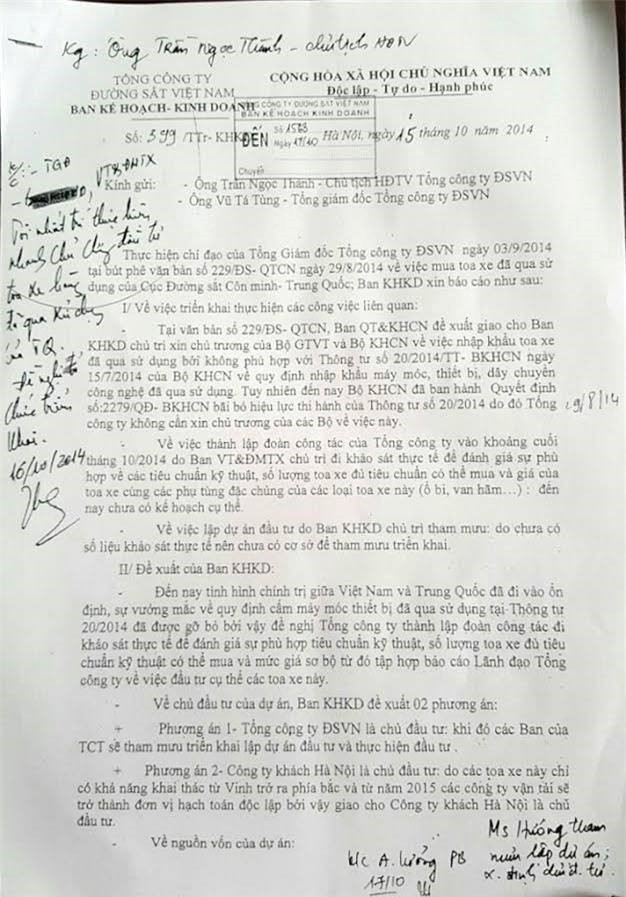 Kg: Ông Trần Ngọc Thành - chủ tịch HĐTV
TỔNG CÔNG TY
ĐƯỜNG SẮT VIỆT NAM
BAN KẾ HOẠCH- KINH DOANH
CỘNG HÒA XÃ HỘI CHỦ NGHĨA VIỆT NAM
Độc lập - Tự do - Hạnh phúc
TỔNG CÔNG TY ĐƯỜNG SẮT VIỆT NAM
BAN KẾ HOẠCH KINH DOANH
ĐẾN
Số: 1583
Ngày 17/10
Chuyển
Số: 399 /TTr- KHKD
Hà Nội, ngày 15 tháng 10 năm 2014
K/c: - TGĐ
VT&ĐMTX
Kính gửi: - Ông Trần Ngọc Thành - Chủ tịch HĐTV Tổng công ty ĐSVN
- Ông Vũ Tá Tùng - Tổng giám đốc Tổng công ty ĐSVN
Tôi nhất trí thực hiện
nhanh chủ đầu tư
toa xe hàng
đã qua sử dụng
của TQ.
Đề nghị tổ
chức triển
khai.
16/10/2014
Thực hiện chỉ đạo của Tổng Giám đốc Tổng công ty ĐSVN ngày 03/9/2014
tại bút phê văn bản số 229/ĐS- QTCN ngày 29/8/2014 về việc mua toa xe đã qua sử
dụng của Cục Đường sắt Côn minh- Trung Quốc; Ban KHKD xin báo cáo như sau:
I/ Về việc triển khai thực hiện các công việc liên quan:
- Tại văn bản số 229/ĐS- QTCN, Ban QT&KHCN đề xuất giao cho Ban
KHKD chủ trì xin chủ trương của Bộ GTVT và Bộ KHCN về việc nhập khẩu toa xe
đã qua sử dụng bởi không phù hợp với Thông tư số 20/2014/TT- BKHCN ngày
15/7/2014 của Bộ KHCN về quy định nhập khẩu máy móc, thiết bị, dây chuyền
công nghệ đã qua sử dụng. Tuy nhiên đến nay Bộ KHCN đã ban hành Quyết định
số:2279/QĐ- BKHCN bãi bỏ hiệu lực thi hành của Thông tư số 20/2014 do đó Tổng 29/8/14
công ty không cần xin chủ trương của các Bộ về việc này.
- Về việc thành lập đoàn công tác của Tổng công ty vào khoảng cuối
tháng 10/2014 do Ban VT&ĐMTX chủ trì đi khảo sát thực tế để đánh giá sự phù
hợp về các tiêu chuẩn kỹ thuật, số lượng toa xe đủ tiêu chuẩn có thể mua và giá của
toa xe cùng các phụ tùng đặc chủng của các loại toa xe này (ổ bi, van hãm…) : đến
nay chưa có kế hoạch cụ thể.
- Về việc lập dự án đầu tư do Ban KHKD chủ trì tham mưu: do chưa có
số liệu khảo sát thực tế nên chưa có cơ sở để tham mưu triển khai.
II/ Đề xuất của Ban KHKD:
- Đến nay tình hình chính trị giữa Việt Nam và Trung Quốc đã đi vào ổn
định, sự vướng mắc về quy định cấm máy móc thiết bị đã qua sử dụng tại Thông tư
20/2014 đã được gỡ bỏ bởi vậy đề nghị Tổng công ty thành lập đoàn công tác đi
khảo sát thực tế để đánh giá sự phù hợp tiêu chuẩn kỹ thuật, số lượng toa xe đủ tiêu
chuẩn kỹ thuật có thể mua và mức giá sơ bộ từ đó tập hợp báo cáo Lãnh đạo Tổng
công ty về việc đầu tư cụ thể các toa xe này.
- Về chủ đầu tư của dự án, Ban KHKD đề xuất 02 phương án:
+ Phương án 1- Tổng công ty ĐSVN là chủ đầu tư: khi đó các Ban của
TCT sẽ tham mưu triển khai lập dự án đầu tư và thực hiện đầu tư .
+ Phương án 2- Công ty khách Hà Nội là chủ đầu tư: do các toa xe này chỉ
có khả năng khai thác từ Vinh trở ra phía bắc và từ năm 2015 các công ty vận tải sẽ
trở thành đơn vị hạch toán độc lập bởi vậy giao cho Công ty khách Hà Nội là chủ
đầu tư.
- Về nguồn vốn của dự án:
K/c A. Lương PB
17/10
Ms Hướng tham
mưu lập dự án;
x. định chủ đ. tư.